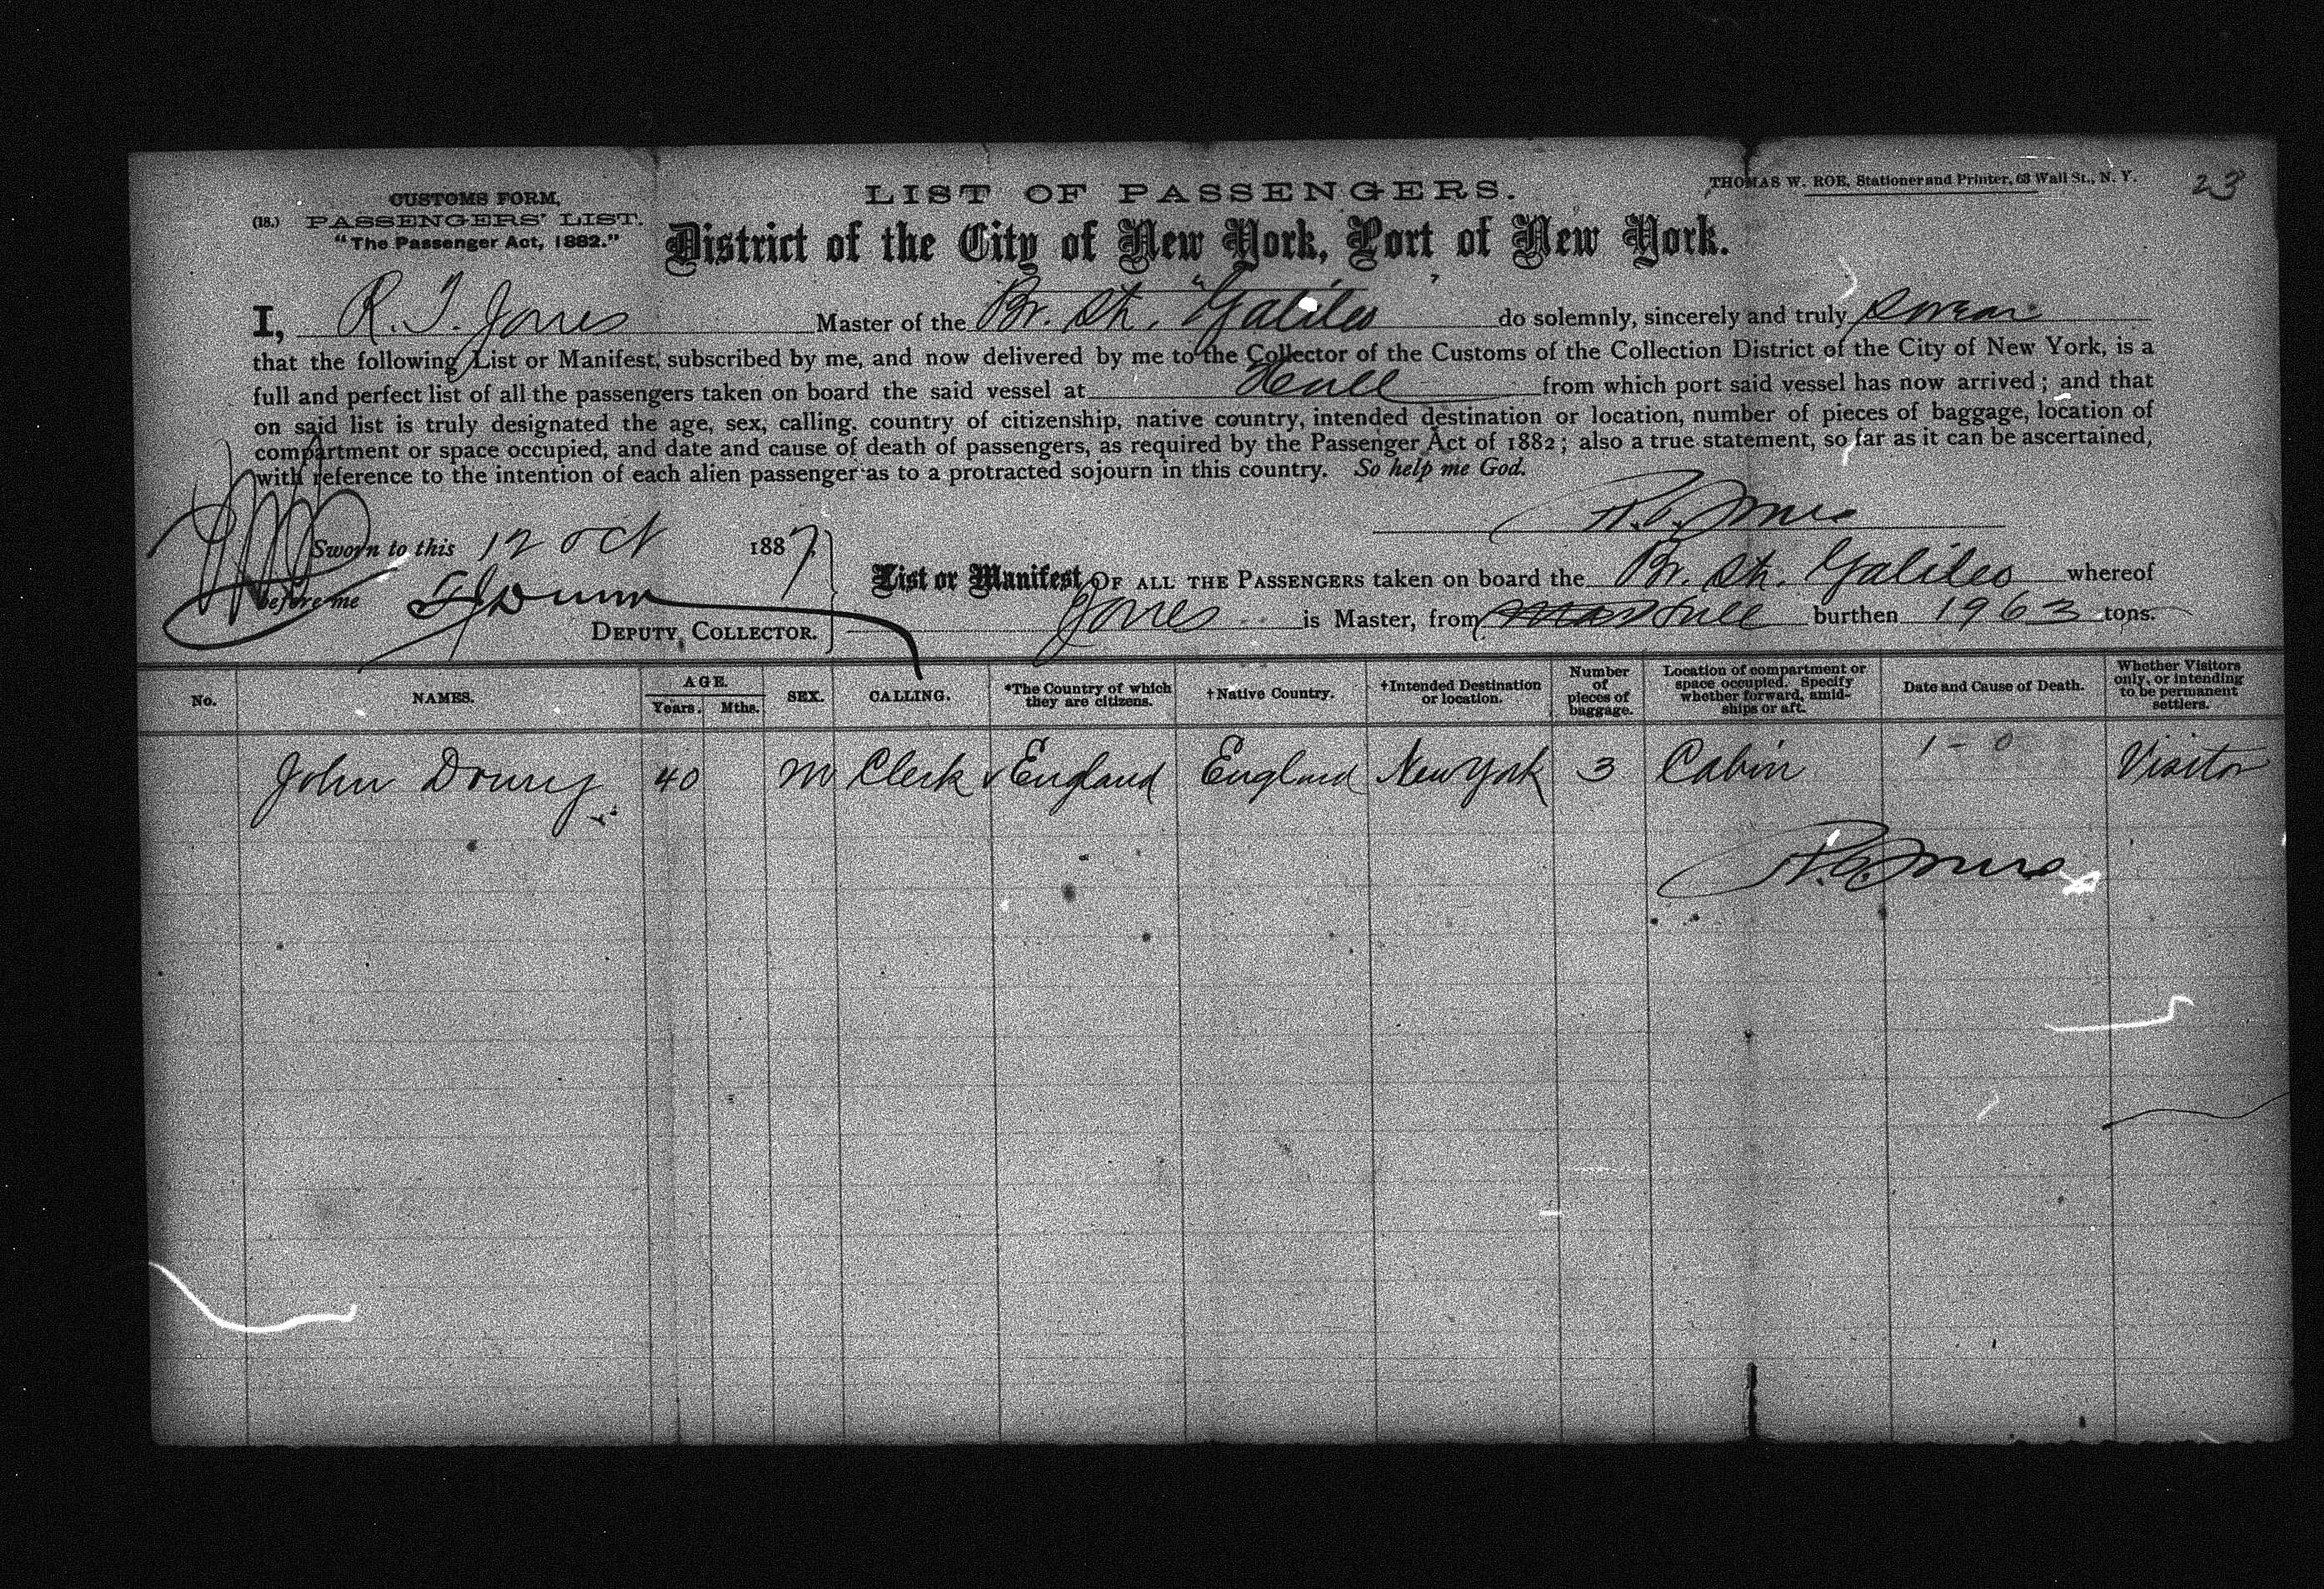 CUSTOMS FORM,
(18.) PASSENGERS' LIST.
"The Passenger Act, 1882."
LIST OF PASSENGERS.
THOMAS W. ROE, Stationer and Printer, 63 Wall St., N. Y.
23
District of the City of New York, Port of New York.
I, R. T. Jones Master of the Br. Str. "Galileo" do solemnly, sincerely and truly swear
that the following List or Manifest, subscribed by me, and now delivered by me to the Collector of the Customs of the Collection District of the City of New York, is a
full and perfect list of all the passengers taken on board the said vessel at Hull from which port said vessel has now arrived; and that
on said list is truly designated the age, sex, calling, country of citizenship, native country, intended destination or location, number of pieces of baggage, location of
compartment or space occupied, and date and cause of death of passengers, as required by the Passenger Act of 1882; also a true statement, so far as it can be ascertained,
with reference to the intention of each alien passenger as to a protracted sojourn in this country. So help me God.
Sworn to this 12 Oct 1887,
before me
DEPUTY COLLECTOR.
List or Manifest OF ALL THE PASSENGERS taken on board the Br. Str. Galileo whereof
Jones is Master, from Hull burthen 1963 tons.
No. NAMES. AGE. Years. Mths. SEX. CALLING. *The Country of which they are citizens. †Native Country. †Intended Destination or location. Number of pieces of baggage. Location of compartment or space occupied. Specify whether forward, amidships or aft. Date and Cause of Death. Whether Visitors only, or intending to be permanent settlers.
John 40 M Clerk England England New York 3 Cabin 1 - 0 Visitor